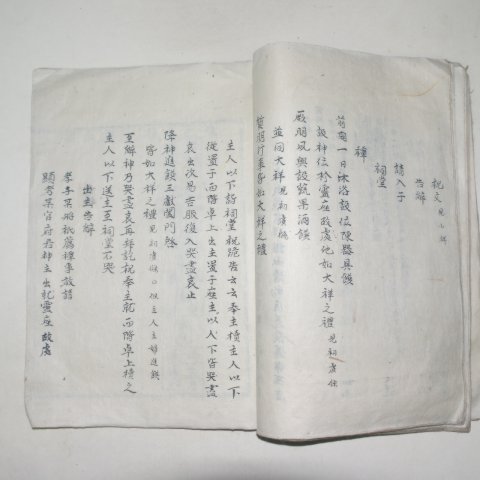 祝文見小祥
告辭
請入于
祠堂
禫
前期一日沐浴設位陳器具饌
設神位於靈座故處他如大祥之禮
厥明夙興設蔬果酒饌
並同大祥
質明行事皆如大祥之禮
主人以下詣祠堂祝跪告云云奉主櫝主人以下
從置于西階卓上出主置于座主人以下皆哭盡
哀出改易吉服復入哭盡哀止
降神進饌三獻闔門啓
皆如大祥之禮
至辭神乃哭盡哀再拜訖祝奉主就西階卓上櫝之
主人以下送主至祠堂不哭
出主告辭
孝子某將祇薦禫事敢請
顯考某官府君神主出就靈座故處